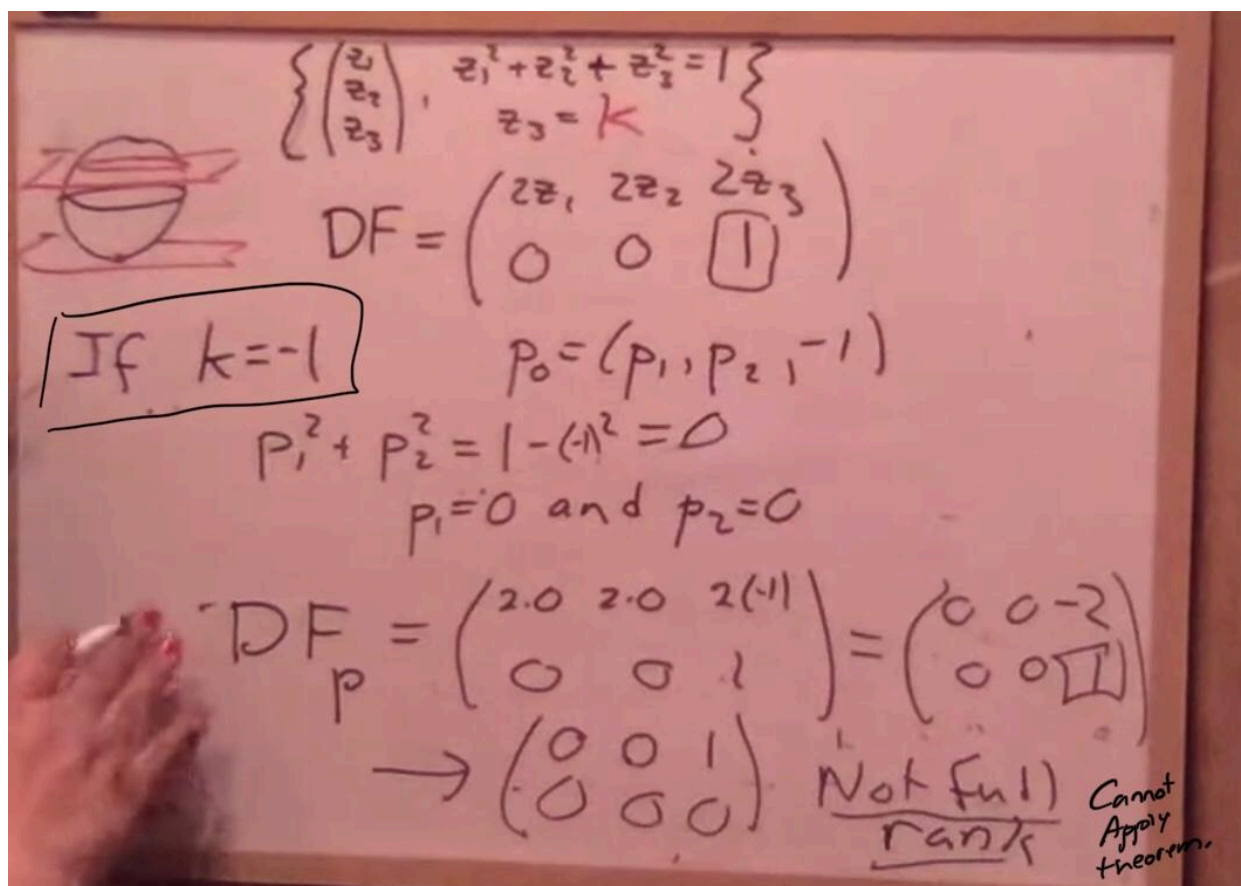 { (z₁ z₂ z₃), z₁² + z₂² + z₃² = 1
z₃ = k }
DF = (2z₁ 2z₂ 2z₃
0 0 1)
If k=-1
p₀ = (p₁, p₂, -1)
p₁² + p₂² = 1 - (-1)² = 0
p₁=0 and p₂=0
DFₚ = (2·0 2·0 2(-1)
0 0 1) = (0 0 -2
0 0 1)
→ (0 0 1
0 0 0)
Not full
rank
Cannot
Apply
theorem.